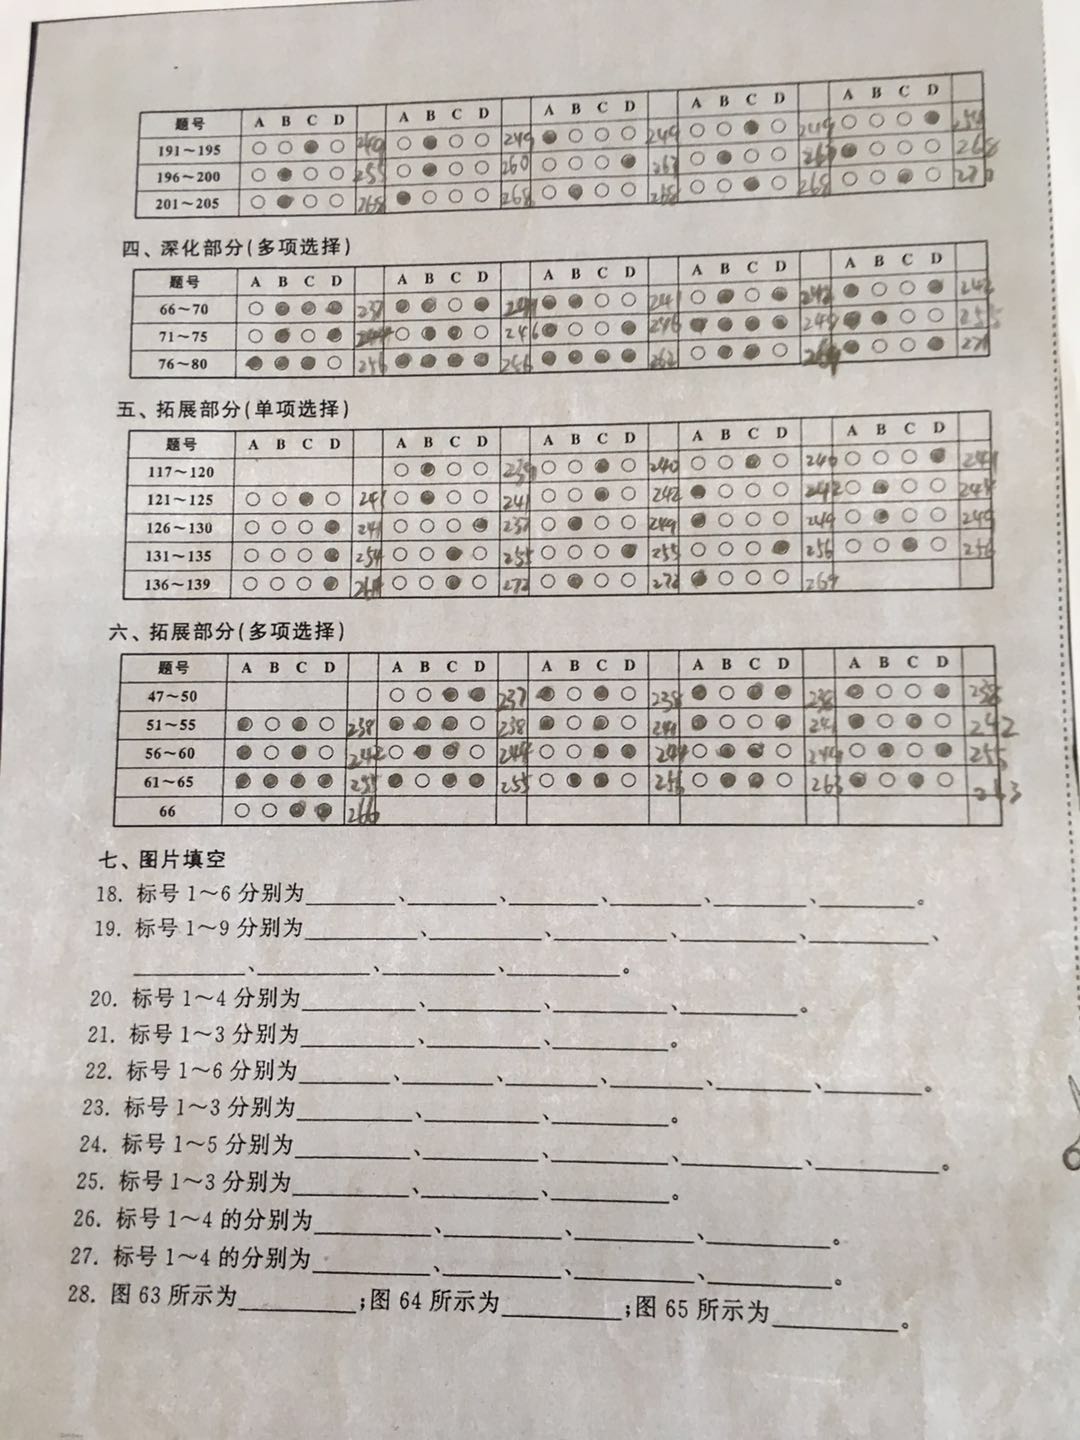 题号 A B C D A B C D A B C D A B C D A B C D
191～195 249 249 249 254
196～200 255 260 263 268
201～205 268 268 268 268 270
四、深化部分(多项选择)
题号 A B C D A B C D A B C D A B C D A B C D
66～70 237 241 242 242
71～75 246 246 249 255
76～80 256 256 262 271
五、拓展部分(单项选择)
题号 A B C D A B C D A B C D A B C D A B C D
117～120 239 240 240 241
121～125 241 241 242 242 244
126～130 241 237 249 249 249
131～135 254 255 255 256 256
136～139 264 272 272 264
六、拓展部分(多项选择)
题号 A B C D A B C D A B C D A B C D A B C D
47～50 237 238 238 238
51～55 238 238 241 241 242
56～60 242 244 244 249 255
61～65 255 255 256 263 263
66 266
七、图片填空
18. 标号1～6分别为、、、、、。
19. 标号1～9分别为、、、、、
、、、。
20. 标号1～4分别为、、、。
21. 标号1～3分别为、、。
22. 标号1～6分别为、、、、、。
23. 标号1～3分别为、、。
24. 标号1～5分别为、、、、。
25. 标号1～3分别为、、。
26. 标号1～4的分别为、、、。
27. 标号1～4的分别为、、、。
28. 图63所示为;图64所示为;图65所示为。